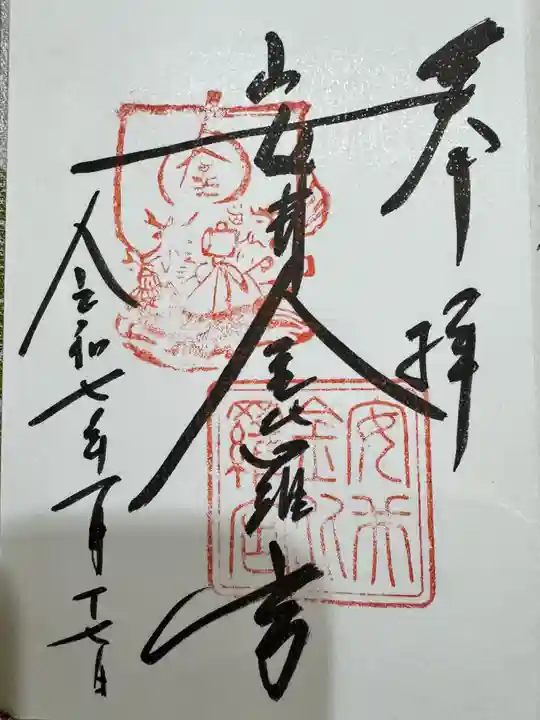 奉拝
安井金比羅宮
令和七年一月十七日
安井
金比
羅宮
金